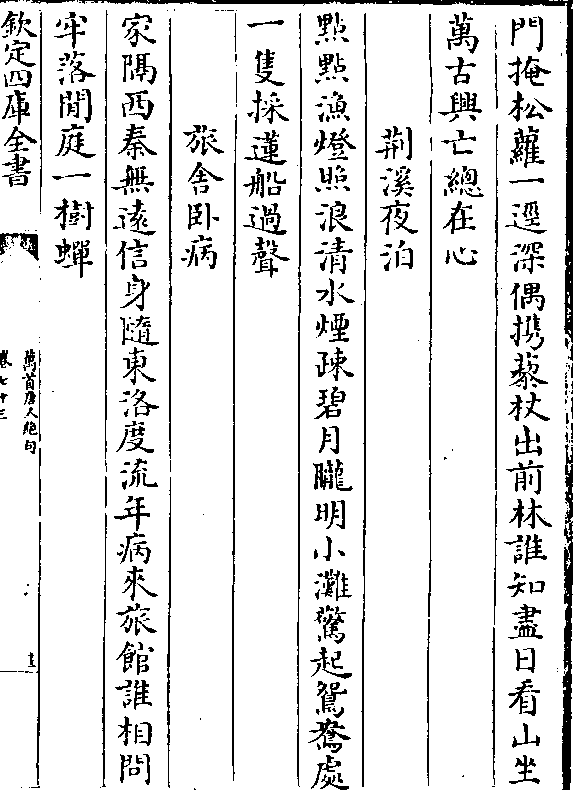 門掩松蘿一逕深偶携藜杖出前林誰知盡日看山坐
萬古興亡總在心
荆溪夜泊
點點漁燈照浪清水煙疎碧月朧明小灘驚起鴛鴦處
一隻採蓮船過聲
旅舎卧病
家隔西秦無遠信身隨東洛度流年病來旅館誰相問
牢落閒庭一樹蟬
欽定四庫全書
萬首唐人絶句
卷七十三